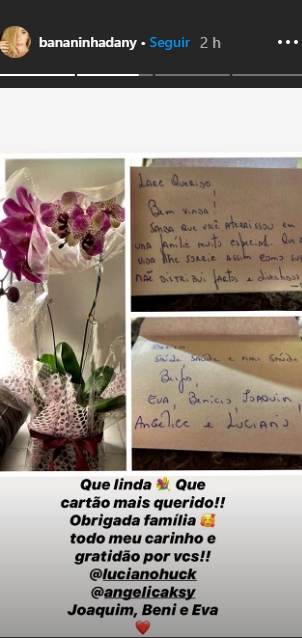 bananinhadany • Seguir 2 h
Bem vinda!
Saiba que você aterrissou em
uma família muito especial. Que a
vida lhe sorrie assim como
não distribui fartos e
saúde saúde e mais saúde
Beijos,
Eva, Benício, Joaquim,
Angélica e Luciano
Que linda 💐 Que
cartão mais querido!!
Obrigada família 🥰
todo meu carinho e
gratidão por vcs!!
@lucianohuck
@angelicaksy
Joaquim, Beni e Eva
❤️